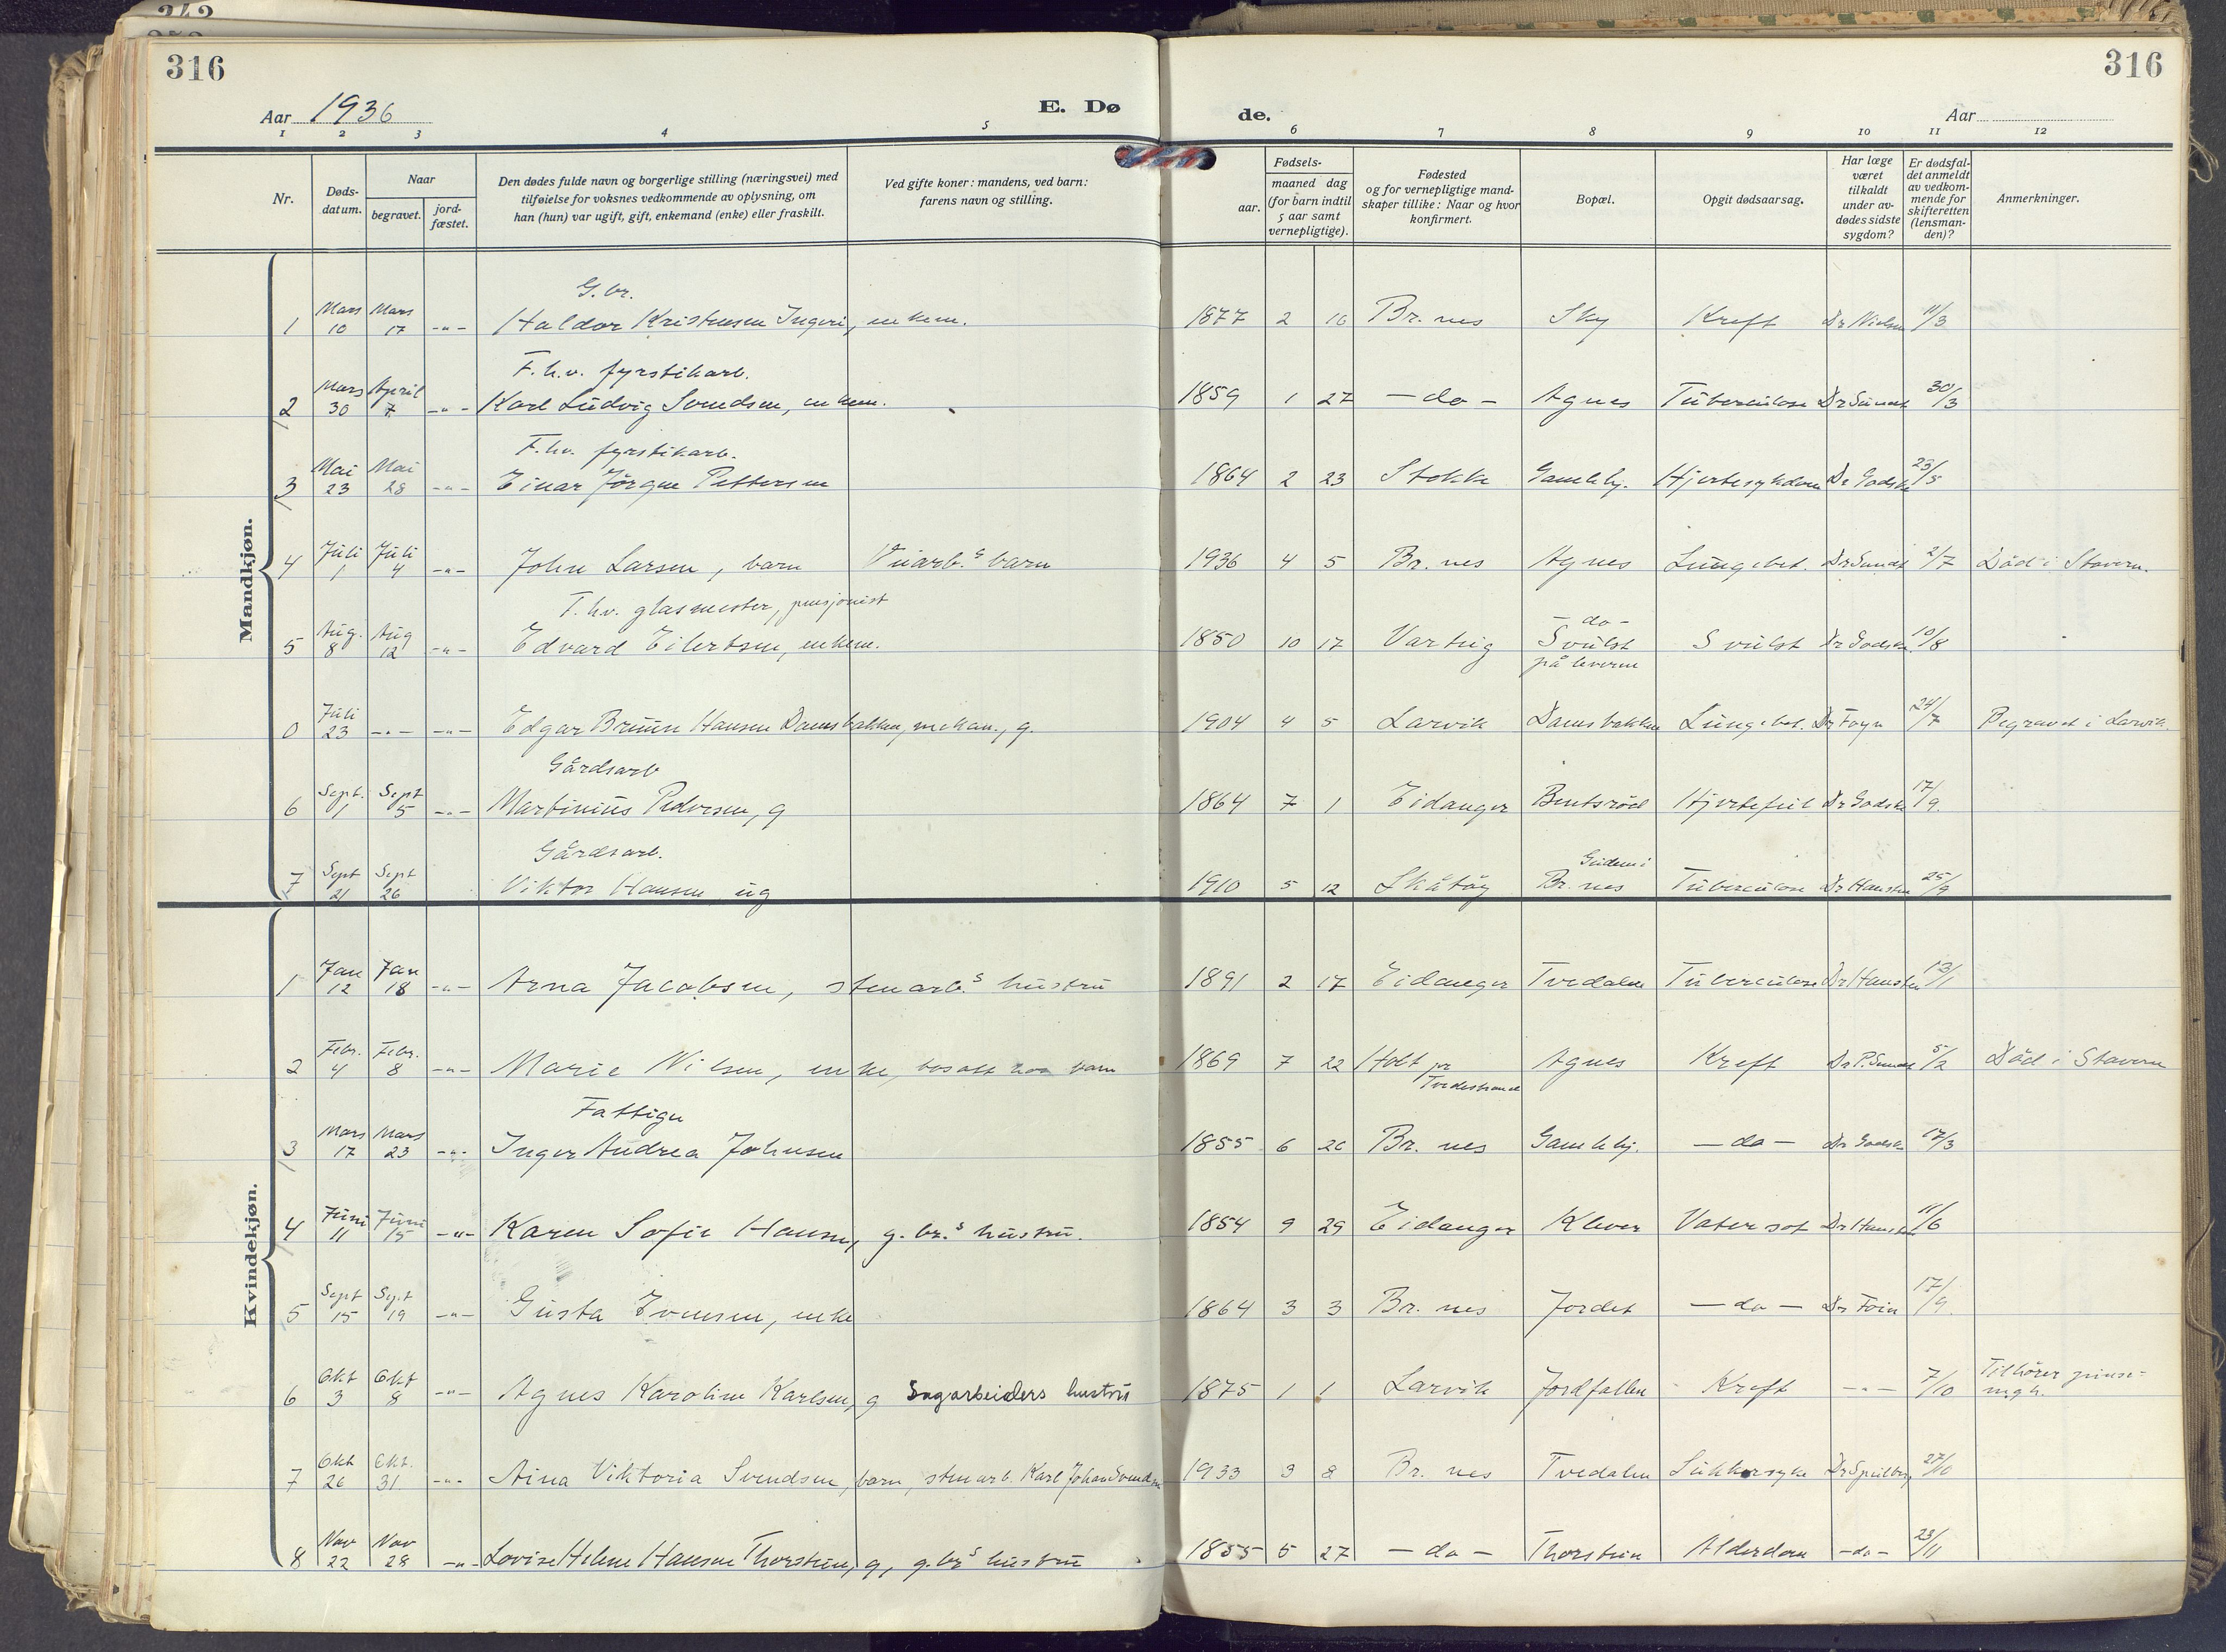 316
316
Aar 1936
E. Dø
de.
Aar
1 2 3 4 5 6 7 8 9 10 11 12
Nr.
Døds-
datum.
Naar
begravet.
jord-
fæstet.
Den dødes fulde navn og borgerlige stilling (næringsvei) med
tilføielse for voksnes vedkommende av oplysning, om
han (hun) var ugift, gift, enkemand (enke) eller fraskilt.
Ved gifte koner: mandens, ved barn:
farens navn og stilling.
Fødsels-
aar.
maaned dag
(for barn indtil
5 aar samt
vernepligtige).
Fødested
og for vernepligtige mand-
skaper tillike: Naar og hvor
konfirmert.
Bopæl.
Opgit dødsaarsag.
Har læge
været
tilkaldt
under av-
dødes sidste
sygdom?
Er dødsfal-
det anmeldt
av vedkom-
mende for
skifteretten
(lensman-
den)?
Anmerkninger.
Mandkjøn.
G.br.
1 Mars 10 Mars 17 -"- Haldor Kristensen Ingeri, enkem. 1877 2 16 Br.nes Sky Kreft Dr Nielsen 11/3
F.h.v. fyrstikarb.
2 Mars 30 April 7 -"- Karl Ludvig Svendsen, enkem. 1859 1 27 -do- Agnes Tuberculose Dr Sundt 30/3
F.hv. fyrstikarb.
3 Mai 23 Mai 28 -"- Einar Jörgen Pettersen 1864 2 23 Stokke Gamleby. Hjertesykdom Dr Godske 23/5
4 Juli 1 Juli 4 -"- John Larsen, barn barn 1936 4 5 Br.nes Agnes Lungebet. Dr Sundt 2/7 Död i Stavern.
F.hv. glasmester, pensjonist
5 Aug. 8 Aug 12 -"- Edvard Eilertsen, enkem. 1850 10 17 Varteig -do- Svulst på leveren Svulst Dr Godske 10/8
0 Juli 23 -"- -"- Edgar Bruun Hansen Damsbakken, mekan., g. 1904 4 5 Larvik Damsbakken Lungebet. Dr Foyn 24/7 Begravet i Larvik.
Gårdsarb
6 Sept. 1 Sept 5 -"- Martinius Pedersen, g 1864 7 1 Eidanger Bentsröd Hjertefeil Dr Godske 17/9.
Gårdsarb.
7 Sept 21 Sept 26 Viktor Hansen ug 1910 5 12 Skåtöy Br.nes Tuberculose Dr Hansten 25/9
Kvindekjøn.
1 Jan 12 Jan 18 -"- Arna Jacobsen, stenarb.s hustru 1891 2 17 Eidanger Tvedalen Tuberculose Dr Hansten 13/1
2 Febr. 4 Febr. 8 -"- Marie Nilsen, enke, bosatt hos barn 1869 7 22 Holt pr Tvedestrand Agnes Kreft Dr P. Sundt 5/2 Död i Stavern
Fattign
3 Mars 17 Mars 23 -"- Inger Andrea Johnsen 1855 6 26 Br.nes Gamleby. -do- Dr Godske 17/3
4 Juni 11 Juni 15 -"- Karen Sofie Hansen, g.br.s hustru. 1854 9 29 Eidanger Klever Vatersot Dr Hansten 11/6
5 Sept 15 Sept 19 -"- Gusta Evensen, enke 1864 3 3 Br.nes Jordet -do- Dr Foin 17/9.
6 Okt 3 Okt 8 -"- Agnes Karoline Karlsen, g Sagarbeiders hustru 1875 1 1 Larvik Jordfallen Kreft -"- 7/10 Tilhörer pinse=
mgh.
7 Okt 26 Okt. 31 -"- Aina Viktoria Svendsen, barn, stenarb. Karl Johan Svendsen 1933 3 8 Br.nes Tvedalen Sukkersyke Dr Spilberg 27/10
8 Nov 22 Nov 28 -"- Lovise Helene Hansen Thorstein, g, g.br.s hustru 1855 5 27 -do- Thorstein Alderdom -do- 23/11